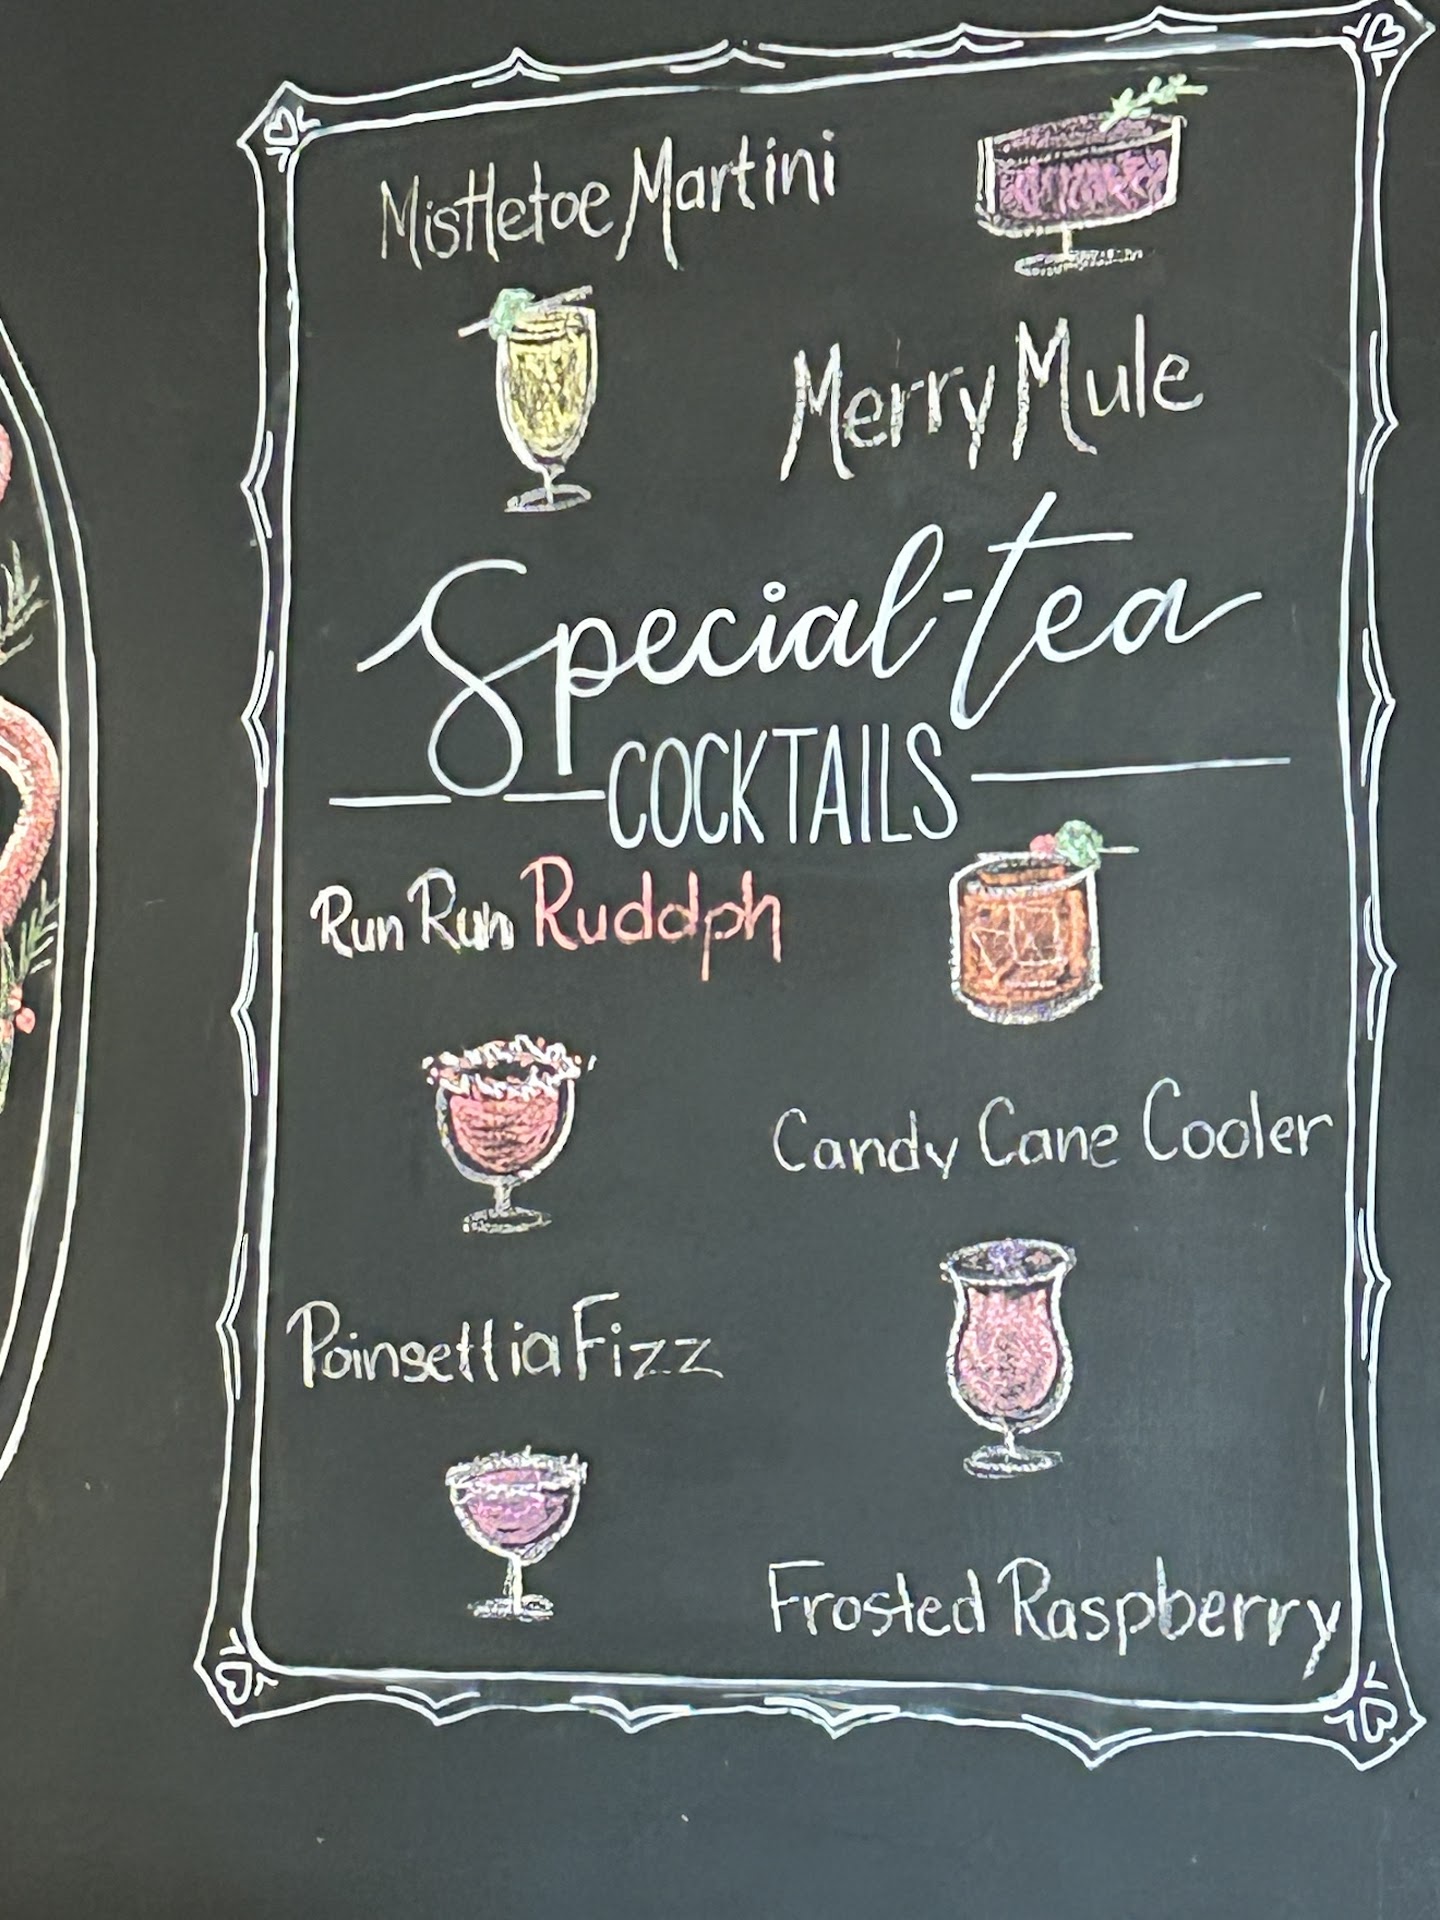 Mistletoe Martini
Merry Mule
Special-tea
COCKTAILS
Run Run Rudolph
Candy Cane Cooler
Poinsettia Fizz
Frosted Raspberry